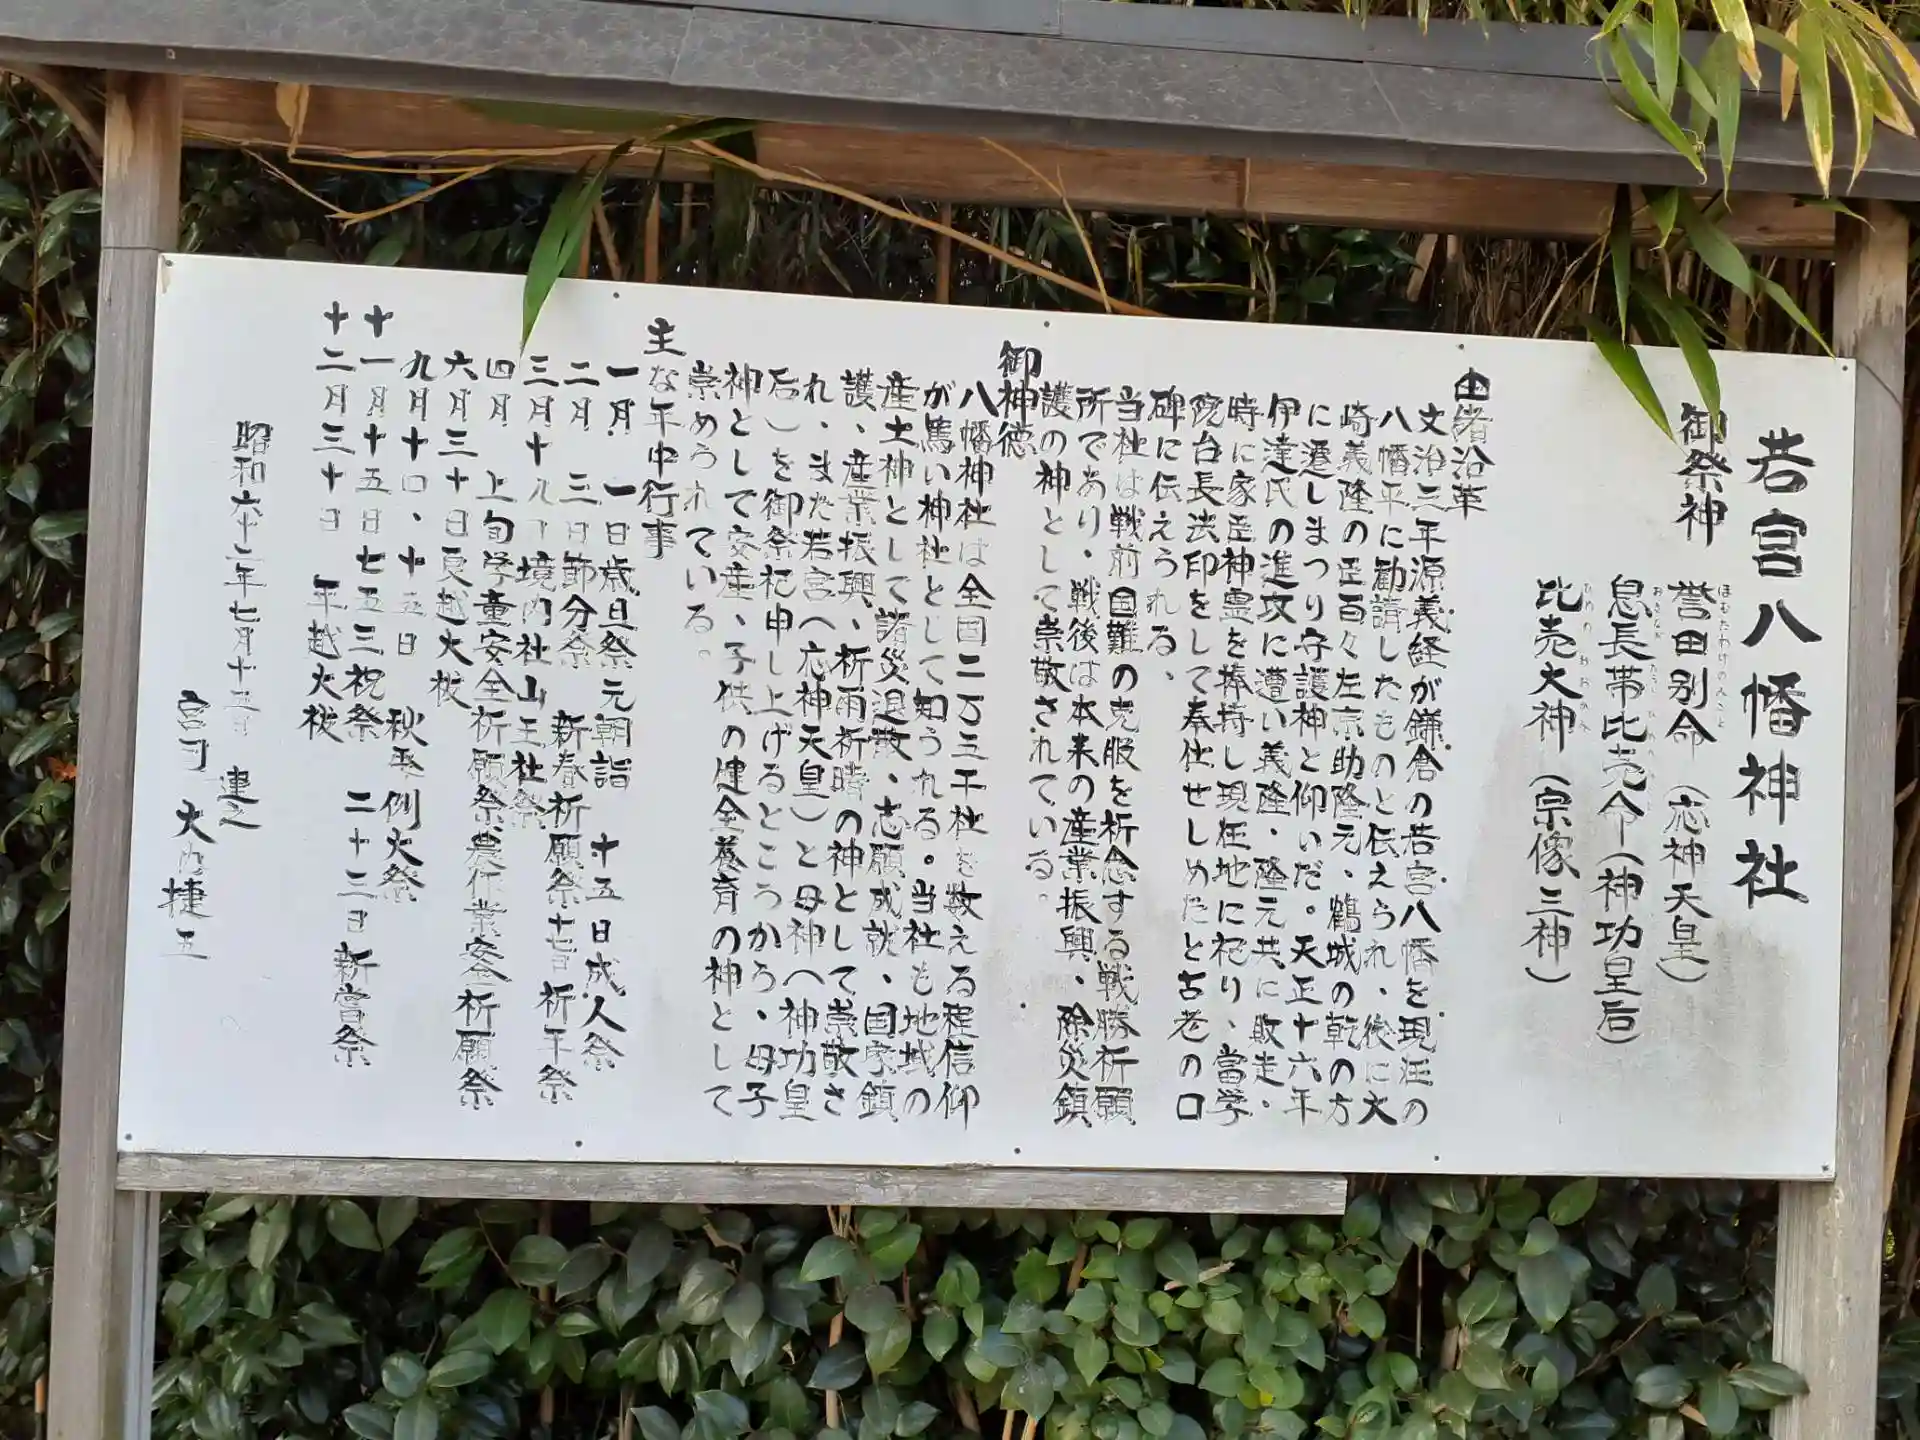 若宮八幡神社
御祭神
誉田別命(応神天皇)
息長帯比売命(神功皇后)
比売大神(宗像三神)
由緒沿革
文治三年源義経が鎌倉の若宮八幡を現在の
八幡平に勧請したものと伝えられ、後に大
崎義隆の臣百々左京助隆元、鶴城の乾の方
に遷しまつり守護神と仰いだ。天正十六年
伊達氏の進攻に遭い義隆・隆元共に敗走・
時に家臣神霊を捧持し現在地に祀り、當学
院台長法印をして奉仕せしめたと古老の口
碑に伝えうれる、
当社は戦前国難の克服を祈念する戦勝祈願
所であり・戦後は本来の産業振興、除災鎮
護の神として崇敬されている。
御神徳
八幡神社は全国二万三千社を数える程信仰
が篤い神社として知うれる。当社も地域の
産土神として諸災退散・志願成就、国家鎮
護、産業振興、祈雨祈時の神として崇敬さ
れ、また若宮へ応神天皇)と母神へ神功皇
后)を御祭祀申し上げるところから、母子
神として安産、子供の健全養育の神として
崇めうれている。
主な年中行事
一月 一日歳旦祭元朝詣 十五日成人祭
二月 三日節分祭 新春祈願祭十七日祈年祭
三月十九日境内社山王社祭
四月 上旬学童安全祈願祭農作業安全祈願祭
六月三十日夏越大祓
九月十四、十五日 秋季例大祭
十一月十五日七五三祝祭 二十三日新嘗祭
十二月三十日 年越大祓
昭和六十二年七月十五日 建之
宮司 大内捷五